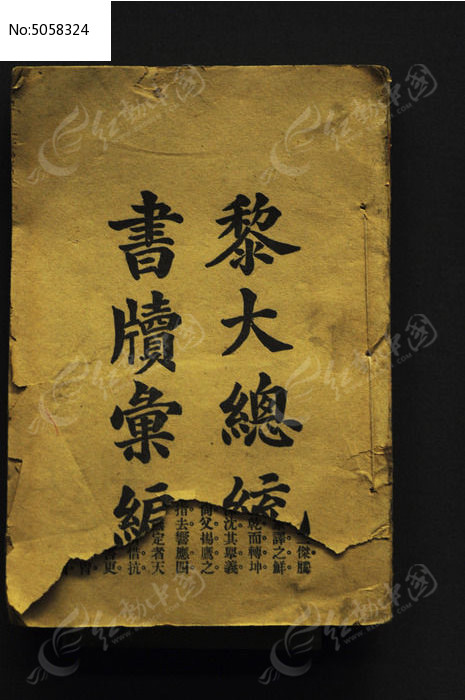 No:5058324
黎大總統
書牘彙編
傑騰
譯之鮮
乾而轉坤
沈其舉義
父揚鷹之
指去響應四
定者天
借抗
更